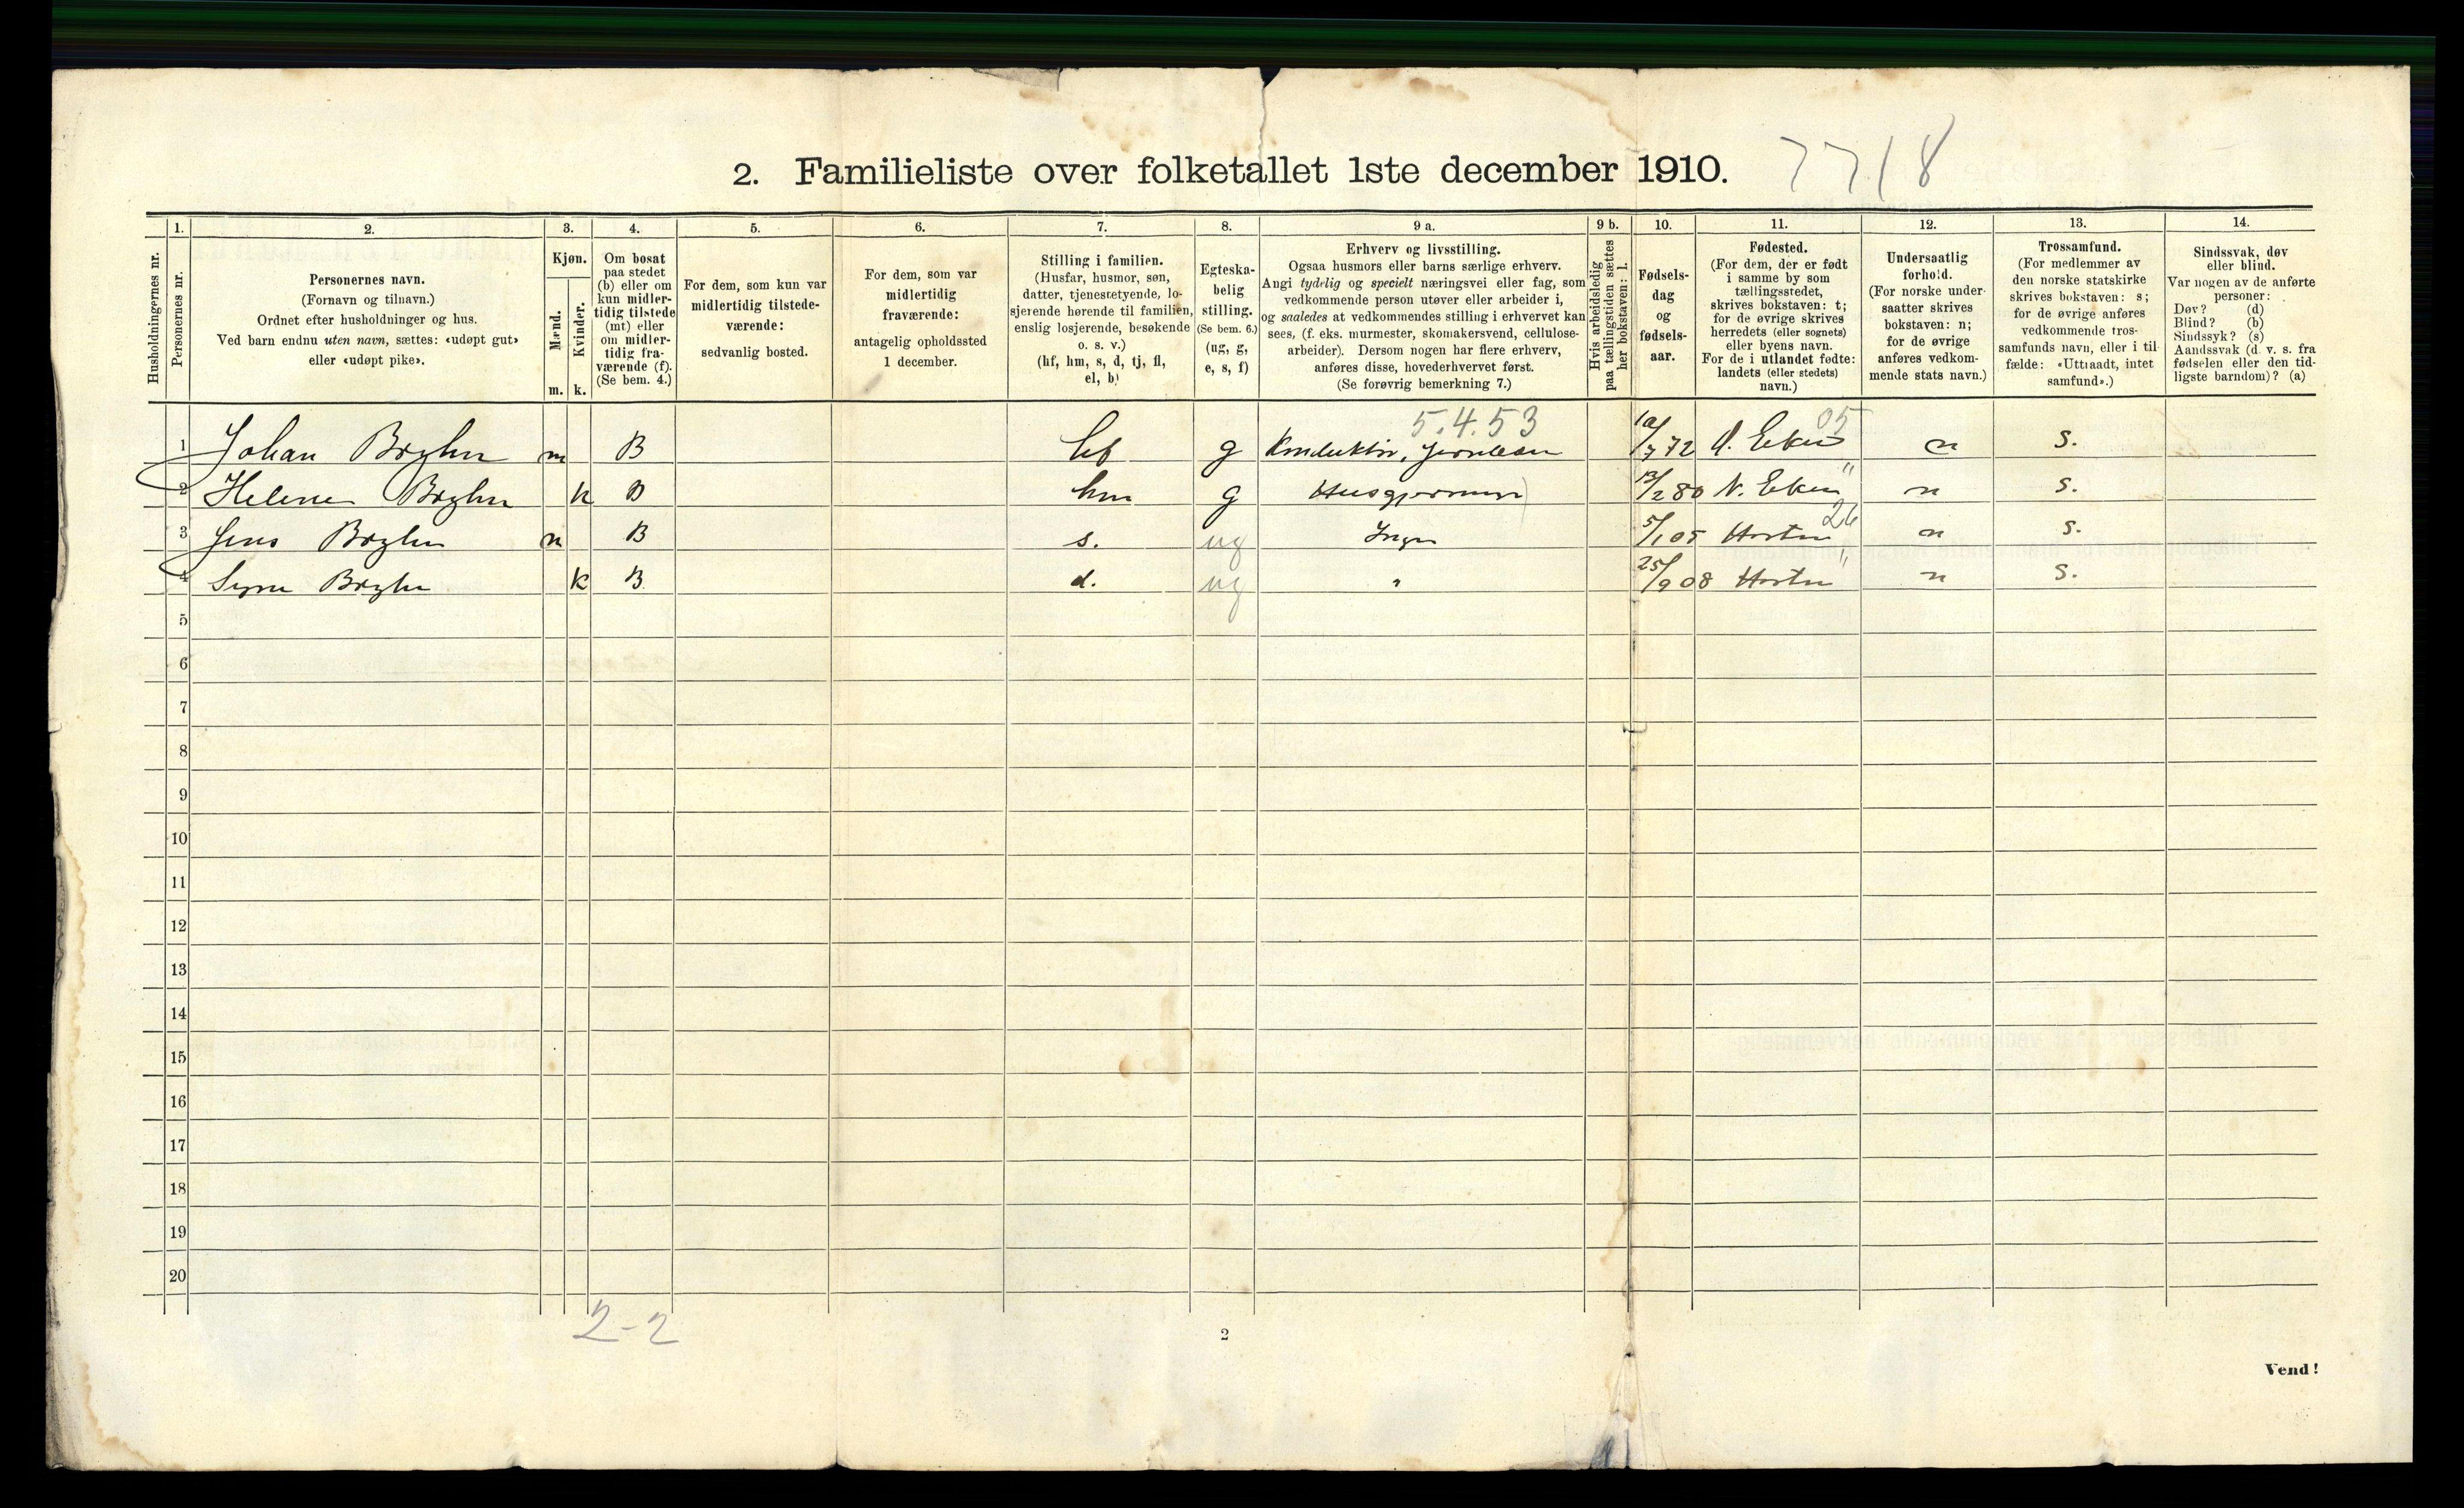 2. Familieliste over folketallet 1ste december 1910. 7718
Husholdningernes nr.
1. Personernes nr.
2. Personernes navn.
(Fornavn og tilnavn.)
Ordnet efter husholdninger og hus.
Ved barn endnu uten navn, sættes: «udøpt gut»
eller «udøpt pike».
3. Kjøn.
Mænd. m.
Kvinder. k.
4. Om bosat
paa stedet
(b) eller om
kun midler-
tidig tilstede
(mt) eller
om midler-
tidig fra-
værende (f).
(Se bem. 4.)
5. For dem, som kun var
midlertidig tilstede-
værende:
sedvanlig bosted.
6. For dem, som var
midlertidig
fraværende:
antagelig opholdssted
1 december.
7. Stilling i familien.
(Husfar, husmor, søn,
datter, tjenestetyende, lo-
sjerende hørende til familien,
enslig losjerende, besøkende
o. s. v.)
(hf, hm, s, d, tj, fl,
el, b)
8. Egteska-
belig
stilling.
(Se bem. 6.)
(ug, g,
e, s, f)
9 a. Erhverv og livsstilling.
Ogsaa husmors eller barns særlige erhverv.
Angi tydelig og specielt næringsvei eller fag, som
vedkommende person utøver eller arbeider i,
og saaledes at vedkommendes stilling i erhvervet kan
sees, (f. eks. murmester, skomakersvend, cellulose-
arbeider). Dersom nogen har flere erhverv,
anføres disse, hovederhvervet først.
(Se forøvrig bemerkning 7.)
9 b. Hvis arbeidsledig
paa tællingstiden sættes
her bokstaven: l.
10. Fødsels-
dag
og
fødsels-
aar.
11. Fødested.
(For dem, der er født
i samme by som
tællingsstedet,
skrives bokstaven: t;
for de øvrige skrives
herredets (eller sognets)
eller byens navn.
For de i utlandet fødte:
landets (eller stedets)
navn.)
12. Undersaatlig
forhold.
(For norske under-
saatter skrives
bokstaven: n;
for de øvrige
anføres vedkom-
mende stats navn.)
13. Trossamfund.
(For medlemmer av
den norske statskirke
skrives bokstaven: s;
for de øvrige anføres
vedkommende tros-
samfunds navn, eller i til
fælde: «Uttraadt, intet
samfund».)
14. Sindssvak, døv
eller blind.
Var nogen av de anførte
personer:
Døv? (d)
Blind? (b)
Sindssyk? (s)
Aandssvak (d. v. s. fra
fødselen eller den tid-
ligste barndom)? (a)
5.4.53 05
1 Johan m B hf g Konduktør, Jernbanen 10/7 72 Ø. Eker n s.
2 Helene k B hm g 13/2 80 N. Eker " n s.
26
3 Jens m B s. ug Ingen 5/1 05 Horten n s.
4 Signe k B d. ug " 25/9 08 Horten " n s.
5
6
7
8
9
10
11
12
13
14
15
16
17
18
19
20
2-2
2
Vend!